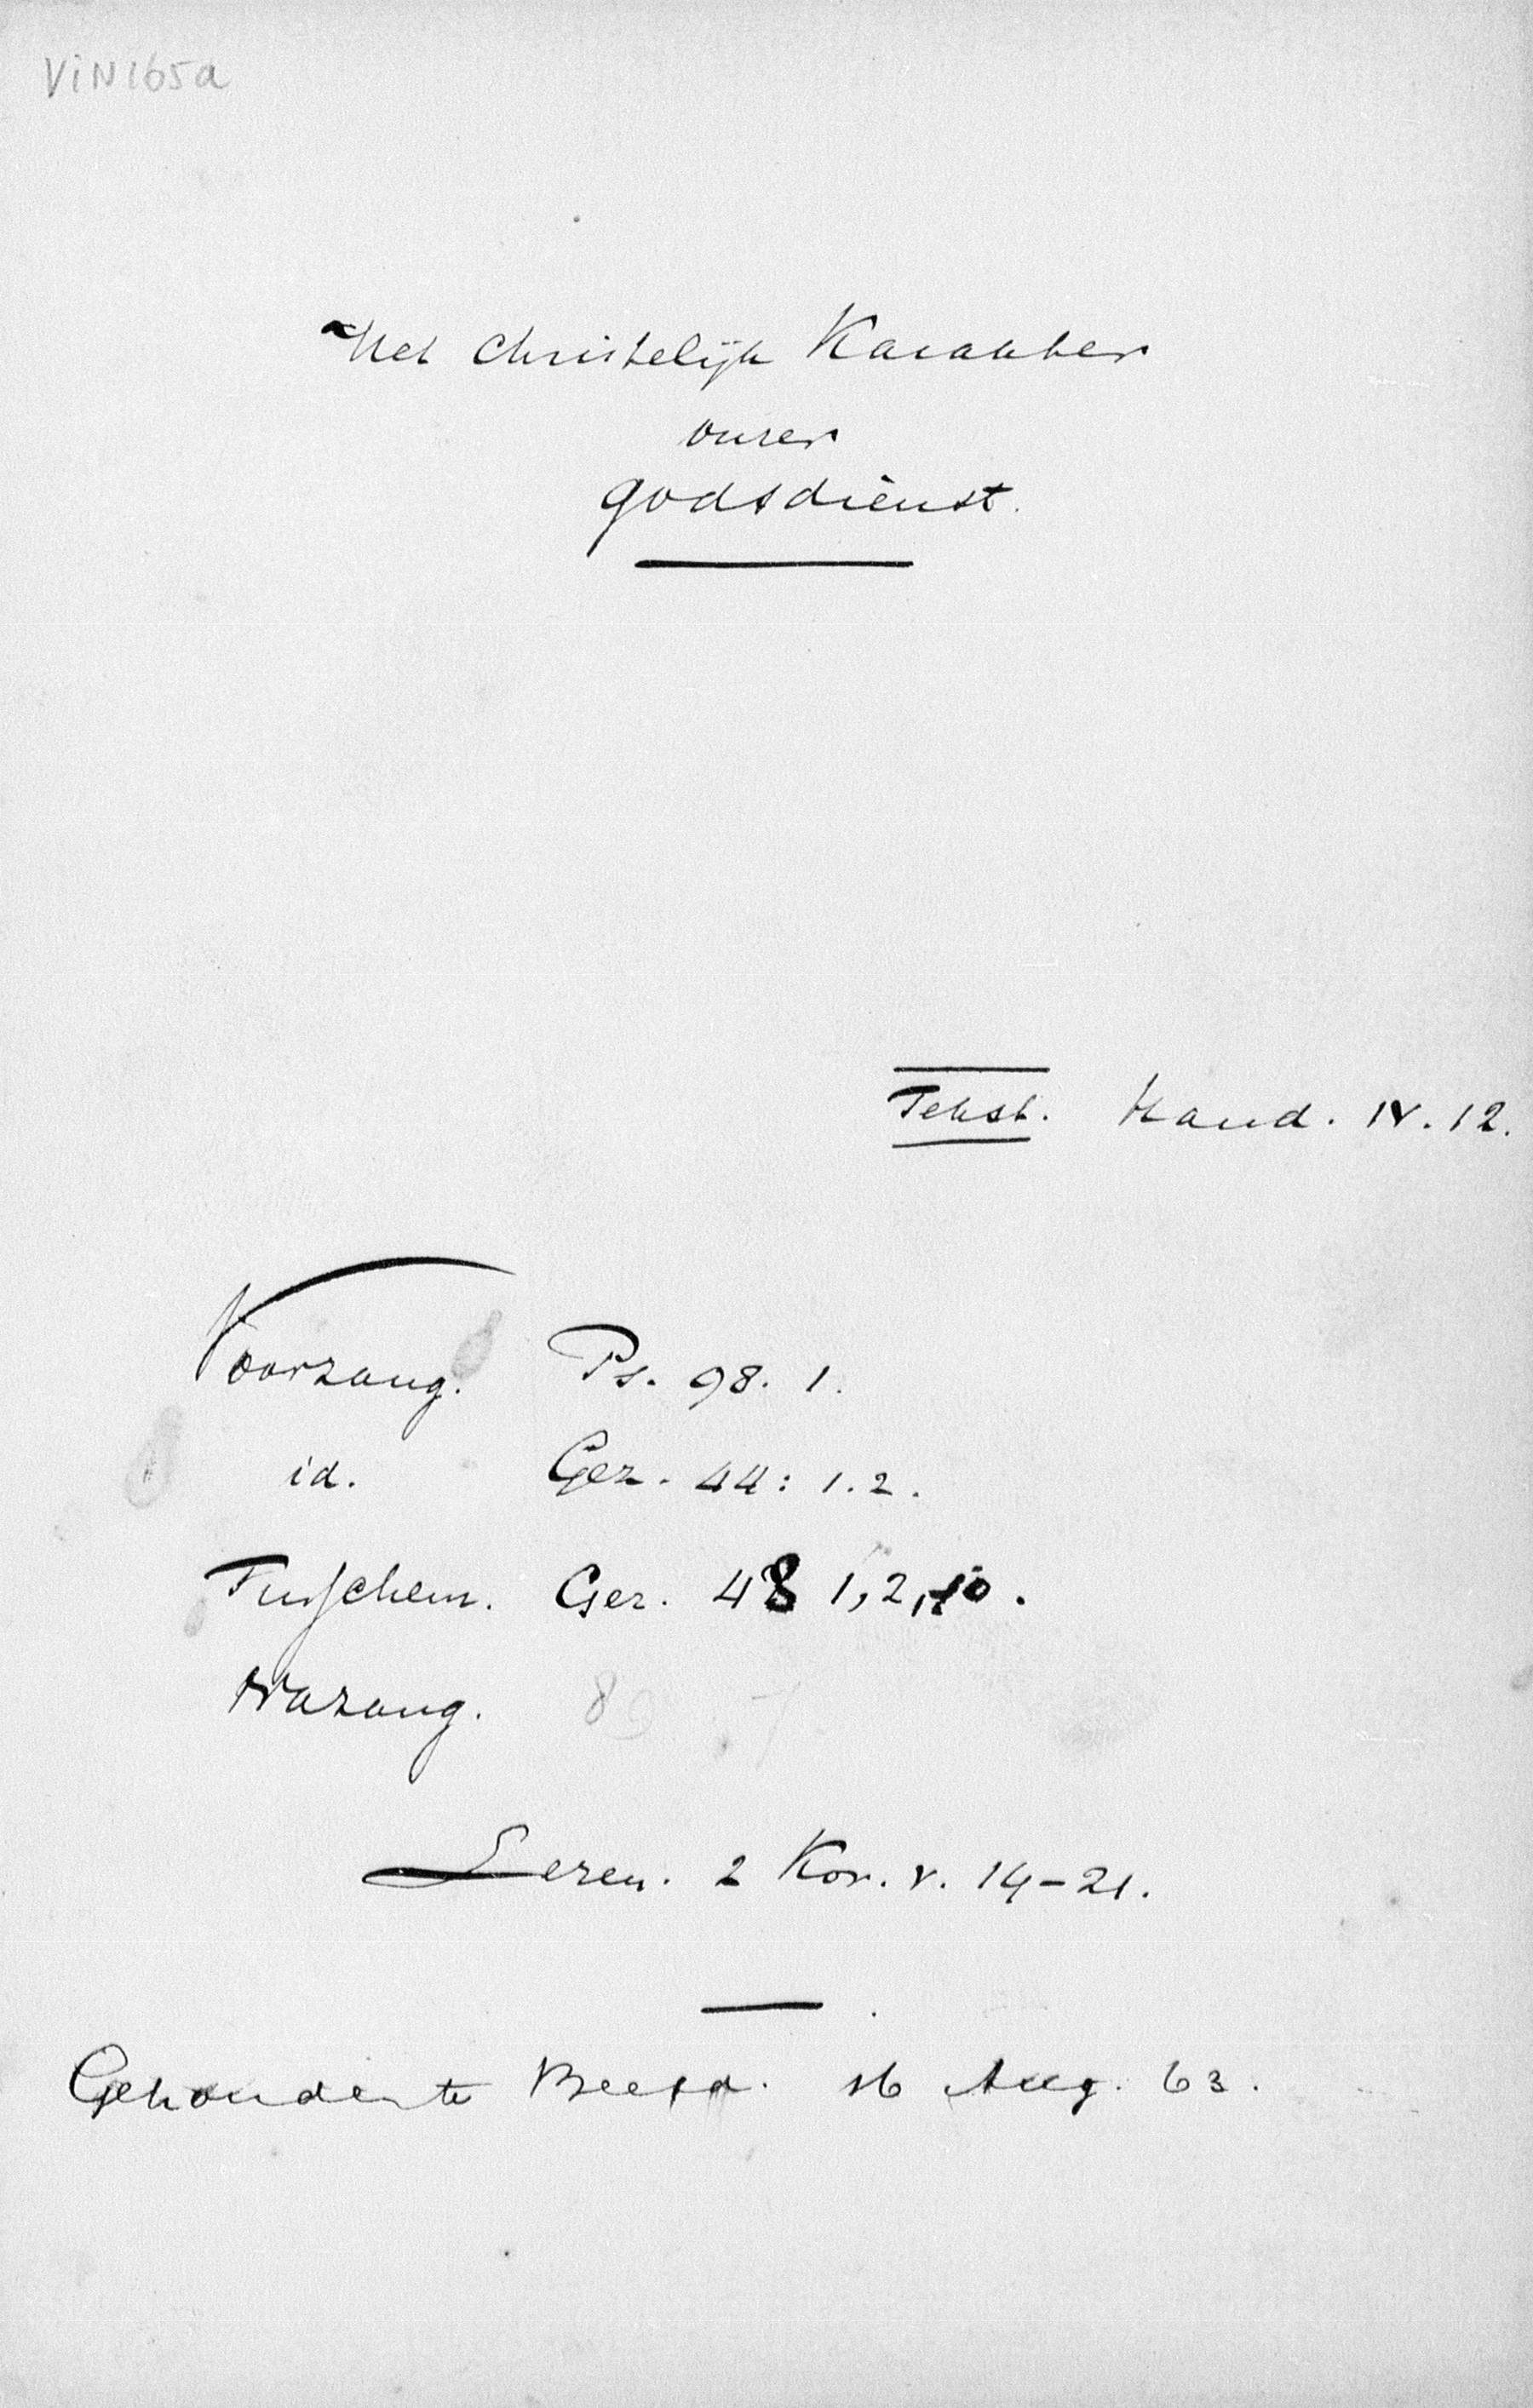 ViN165a
Het christelijk Karakter
onzer
godsdienst.
Tekst. Hand. IV. 12.
Voorzang. Ps. 98. 1.
id. Gez. 44: 1. 2.
Tusschenz. Gez. 48 1, 2, 10.
Nazang. 89 7
Lezen. 2 Kor. V. 14-21.
Gehouden te Beesd. 16 Aug. 63.